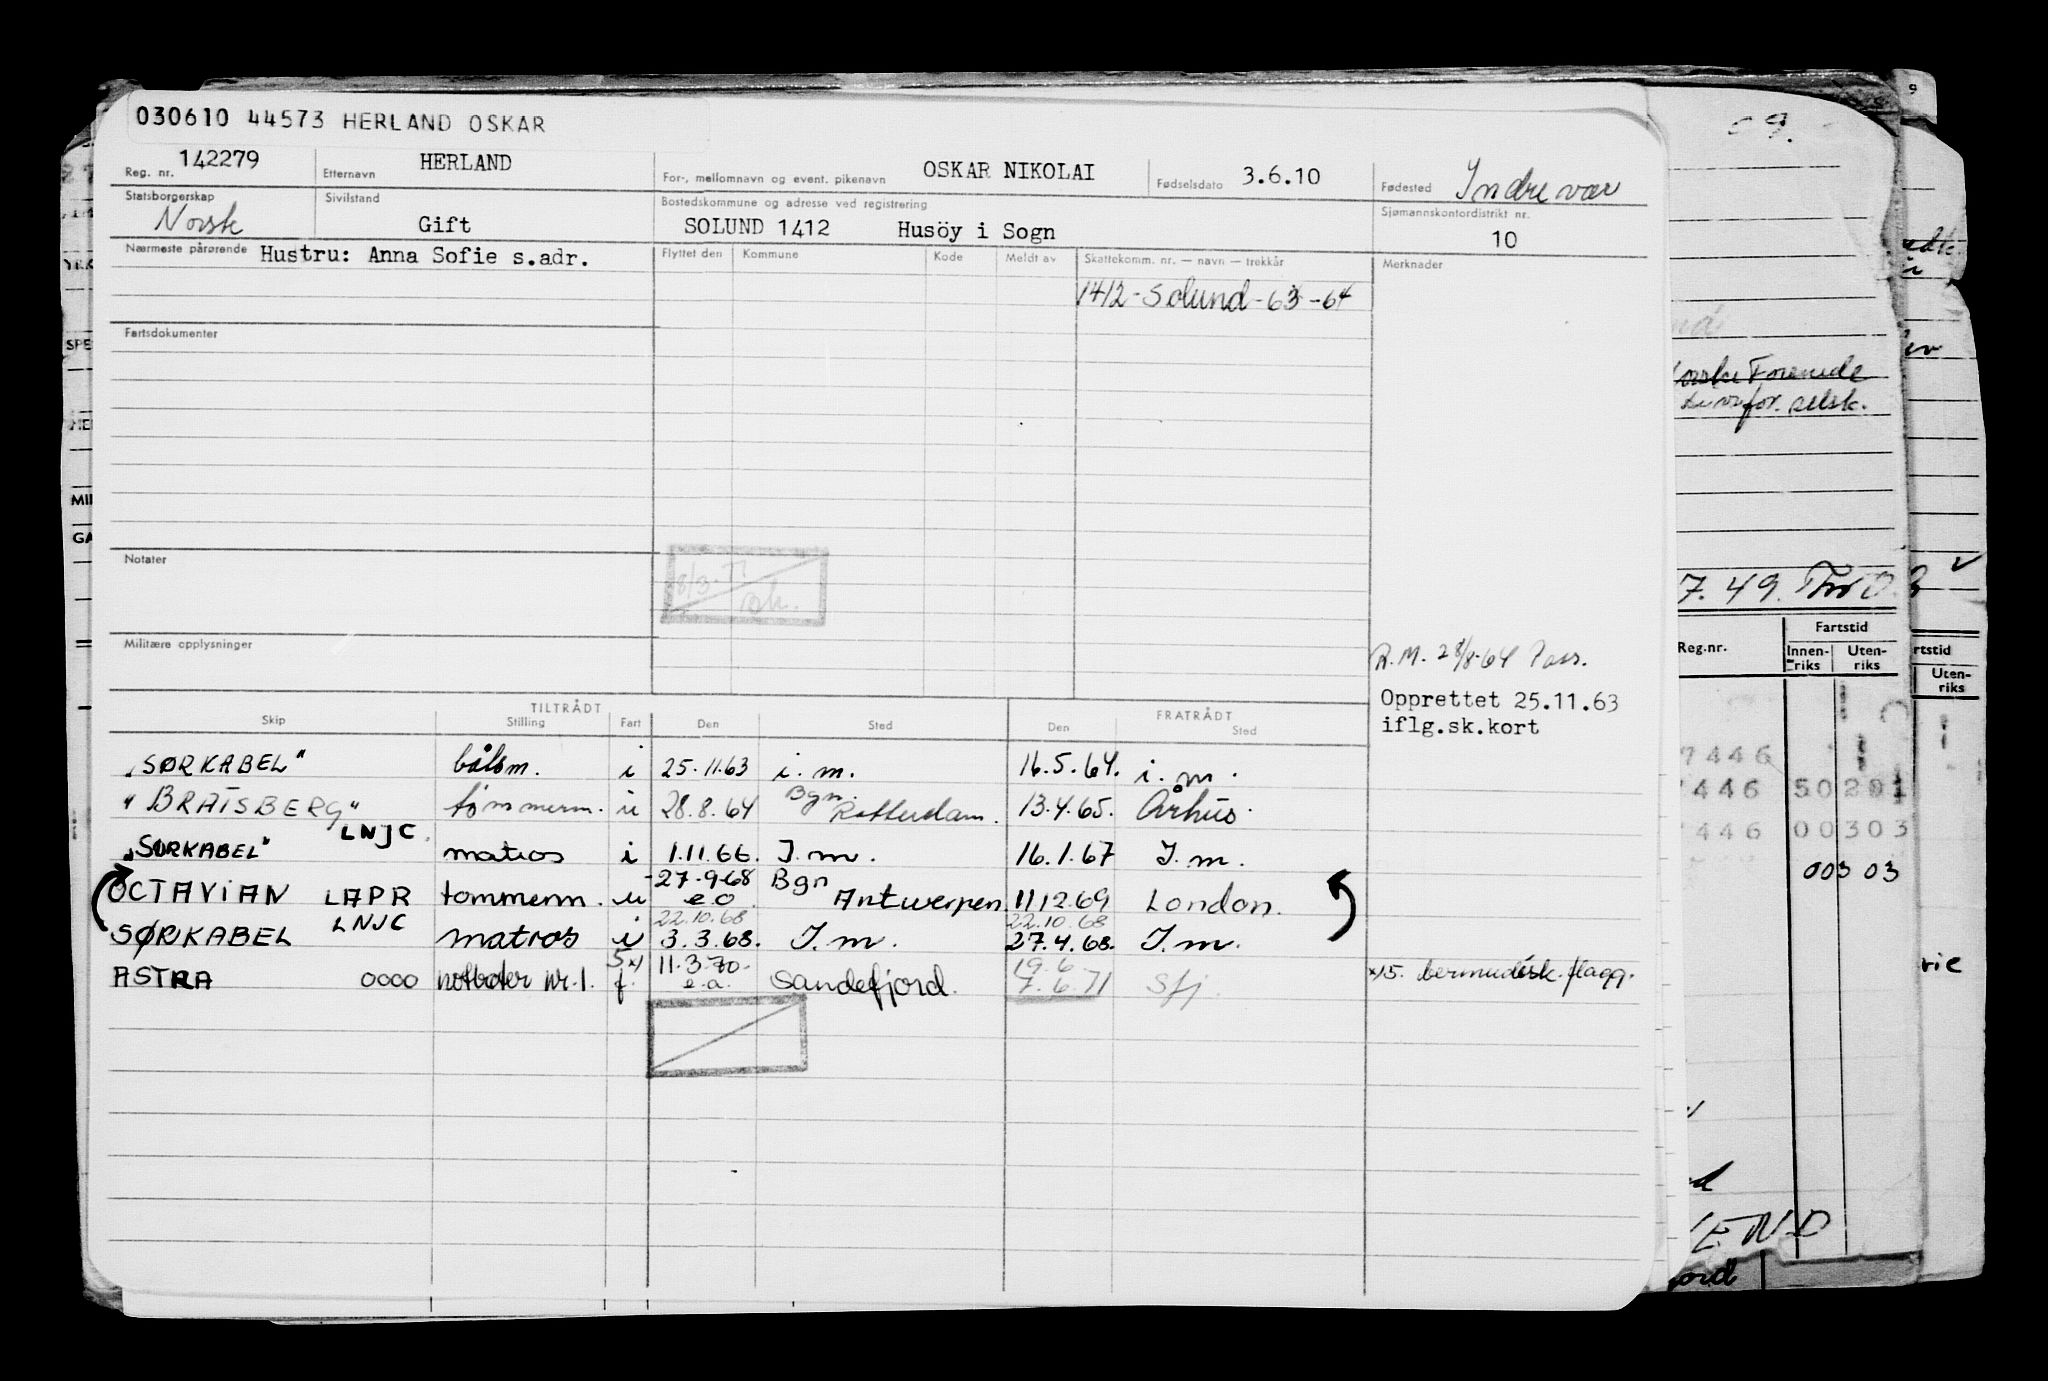 030610 44573 HERLAND OSKAR
Reg. nr. 142279 Etternavn HERLAND For-, mellomnavn og event. pikenavn OSKAR NIKOLAI Fødselsdato 3.6.10 Fødested Indrevær
Statsborgerskap Norsk Sivilstand Gift Bostedskommune og adresse ved registrering SOLUND 1412 Husöy i Sogn Sjømannskontordistrikt nr. 10
Nærmeste pårørende Hustru: Anna Sofie s.adr. Flyttet den Kommune Kode Meldt av Skattekomm. nr. — navn — trekkår Merknader
1412 - Solund - 63 - 64
Fartsdokumenter
Notater
8/3-71
Militære opplysninger
R.M. 28/8-64 Pass.
Opprettet 25.11.63
iflg.sk.kort
TILTRÅDT FRATRÅDT
Skip Stilling Fart Den Sted Den Sted
"SØRKABEL" båtsm. i 25.11.63 i.m. 16.5.64. i.m.
"BRATSBERG" tømmerm. u 28.8.64 Bgn. Rotterdam. 13.4.65. Århus.
"SØRKABEL" LNJC. matros i 1.11.66. I.m. 16.1.67 I.m.
OCTAVIAN LAPR tømmerm. u 27.9.68 e.o 22.10.68 Bgn Antwerpen 11.12.69 London.
SØRKABEL LNJC matros i 3.3.68. I.m. 22.10.68 27.4.68. I.m.
ASTRA 0000 nr.1. f. 5 x) 11.3.70. e.a. Sandefjord. 19.6 7.6.71 Sfj. x) 5. bermudisk flagg.
9.
orske Forenede
for. selsk.
7.49.
Reg.nr. Fartstid
Innen-riks Uten-riks
rtstid
Uten-riks
7446
446 50291
446 00303
003 03
END
ord
SPE
MIL
GA